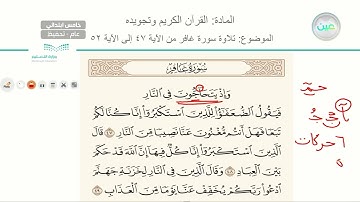 المادة: القرآن الكريم وتجويده
الموضوع: تلاوة سورة غافر من الآية ٤٧ إلى الآية ٥٢
خامس ابتدائي
عام - تحفيظ
عين
سُورَةُ غَافِرٍ
وَإِذْ يَتَحَآجُّونَ فِي ٱلنَّارِ
فَيَقُولُ ٱلضُّعَفَٰٓؤُاْ لِلَّذِينَ ٱسْتَكْبَرُوٓاْ إِنَّا كُنَّا لَكُمْ
تَبَعًا فَهَلْ أَنتُم مُّغْنُونَ عَنَّا نَصِيبًا مِّنَ ٱلنَّارِ ٤٧ قَالَ
ٱلَّذِينَ ٱسْتَكْبَرُوٓاْ إِنَّا كُلٌّ فِيهَآ إِنَّ ٱللَّهَ قَدْ حَكَمَ
بَيْنَ ٱلْعِبَادِ ٤٨ وَقَالَ ٱلَّذِينَ فِي ٱلنَّارِ لِخَزَنَةِ جَهَنَّمَ
ٱدْعُواْ رَبَّكُمْ يُخَفِّفْ عَنَّا يَوْمًا مِّنَ ٱلْعَذَابِ ٤٩
٦ حركات